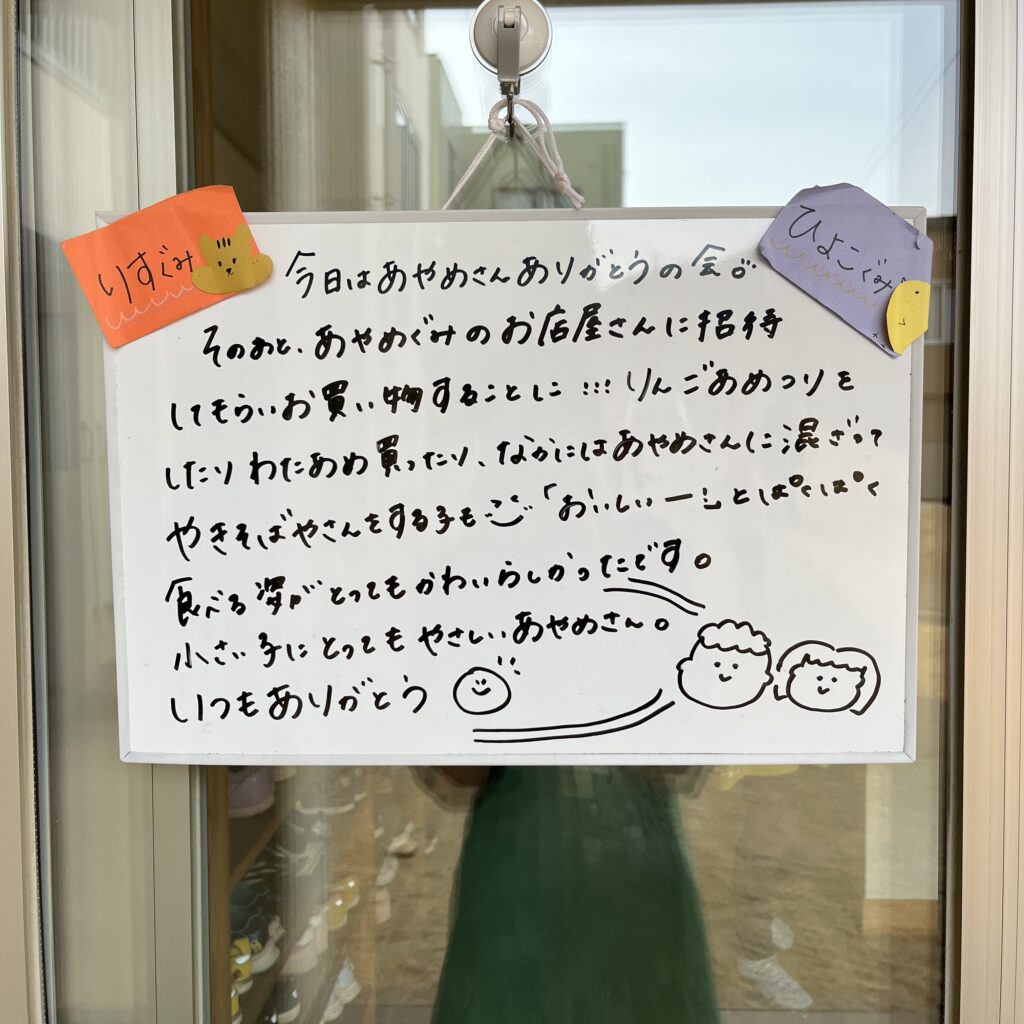 りすぐみ
ひよこぐみ
今日はあやめさんありがとうの会。
そのあと、あやめぐみのお店屋さんに招待
してもらいお買い物することに…!!! りんごあめつりを
したりわたあめ買ったり、なかにはあやめさんに混ざって
やきそばやさんをする子も「おいしいー!」とぱくぱく
食べる姿がとってもかわいらしかったです。
小さい子にとってもやさしいあやめさん。
いつもありがとう